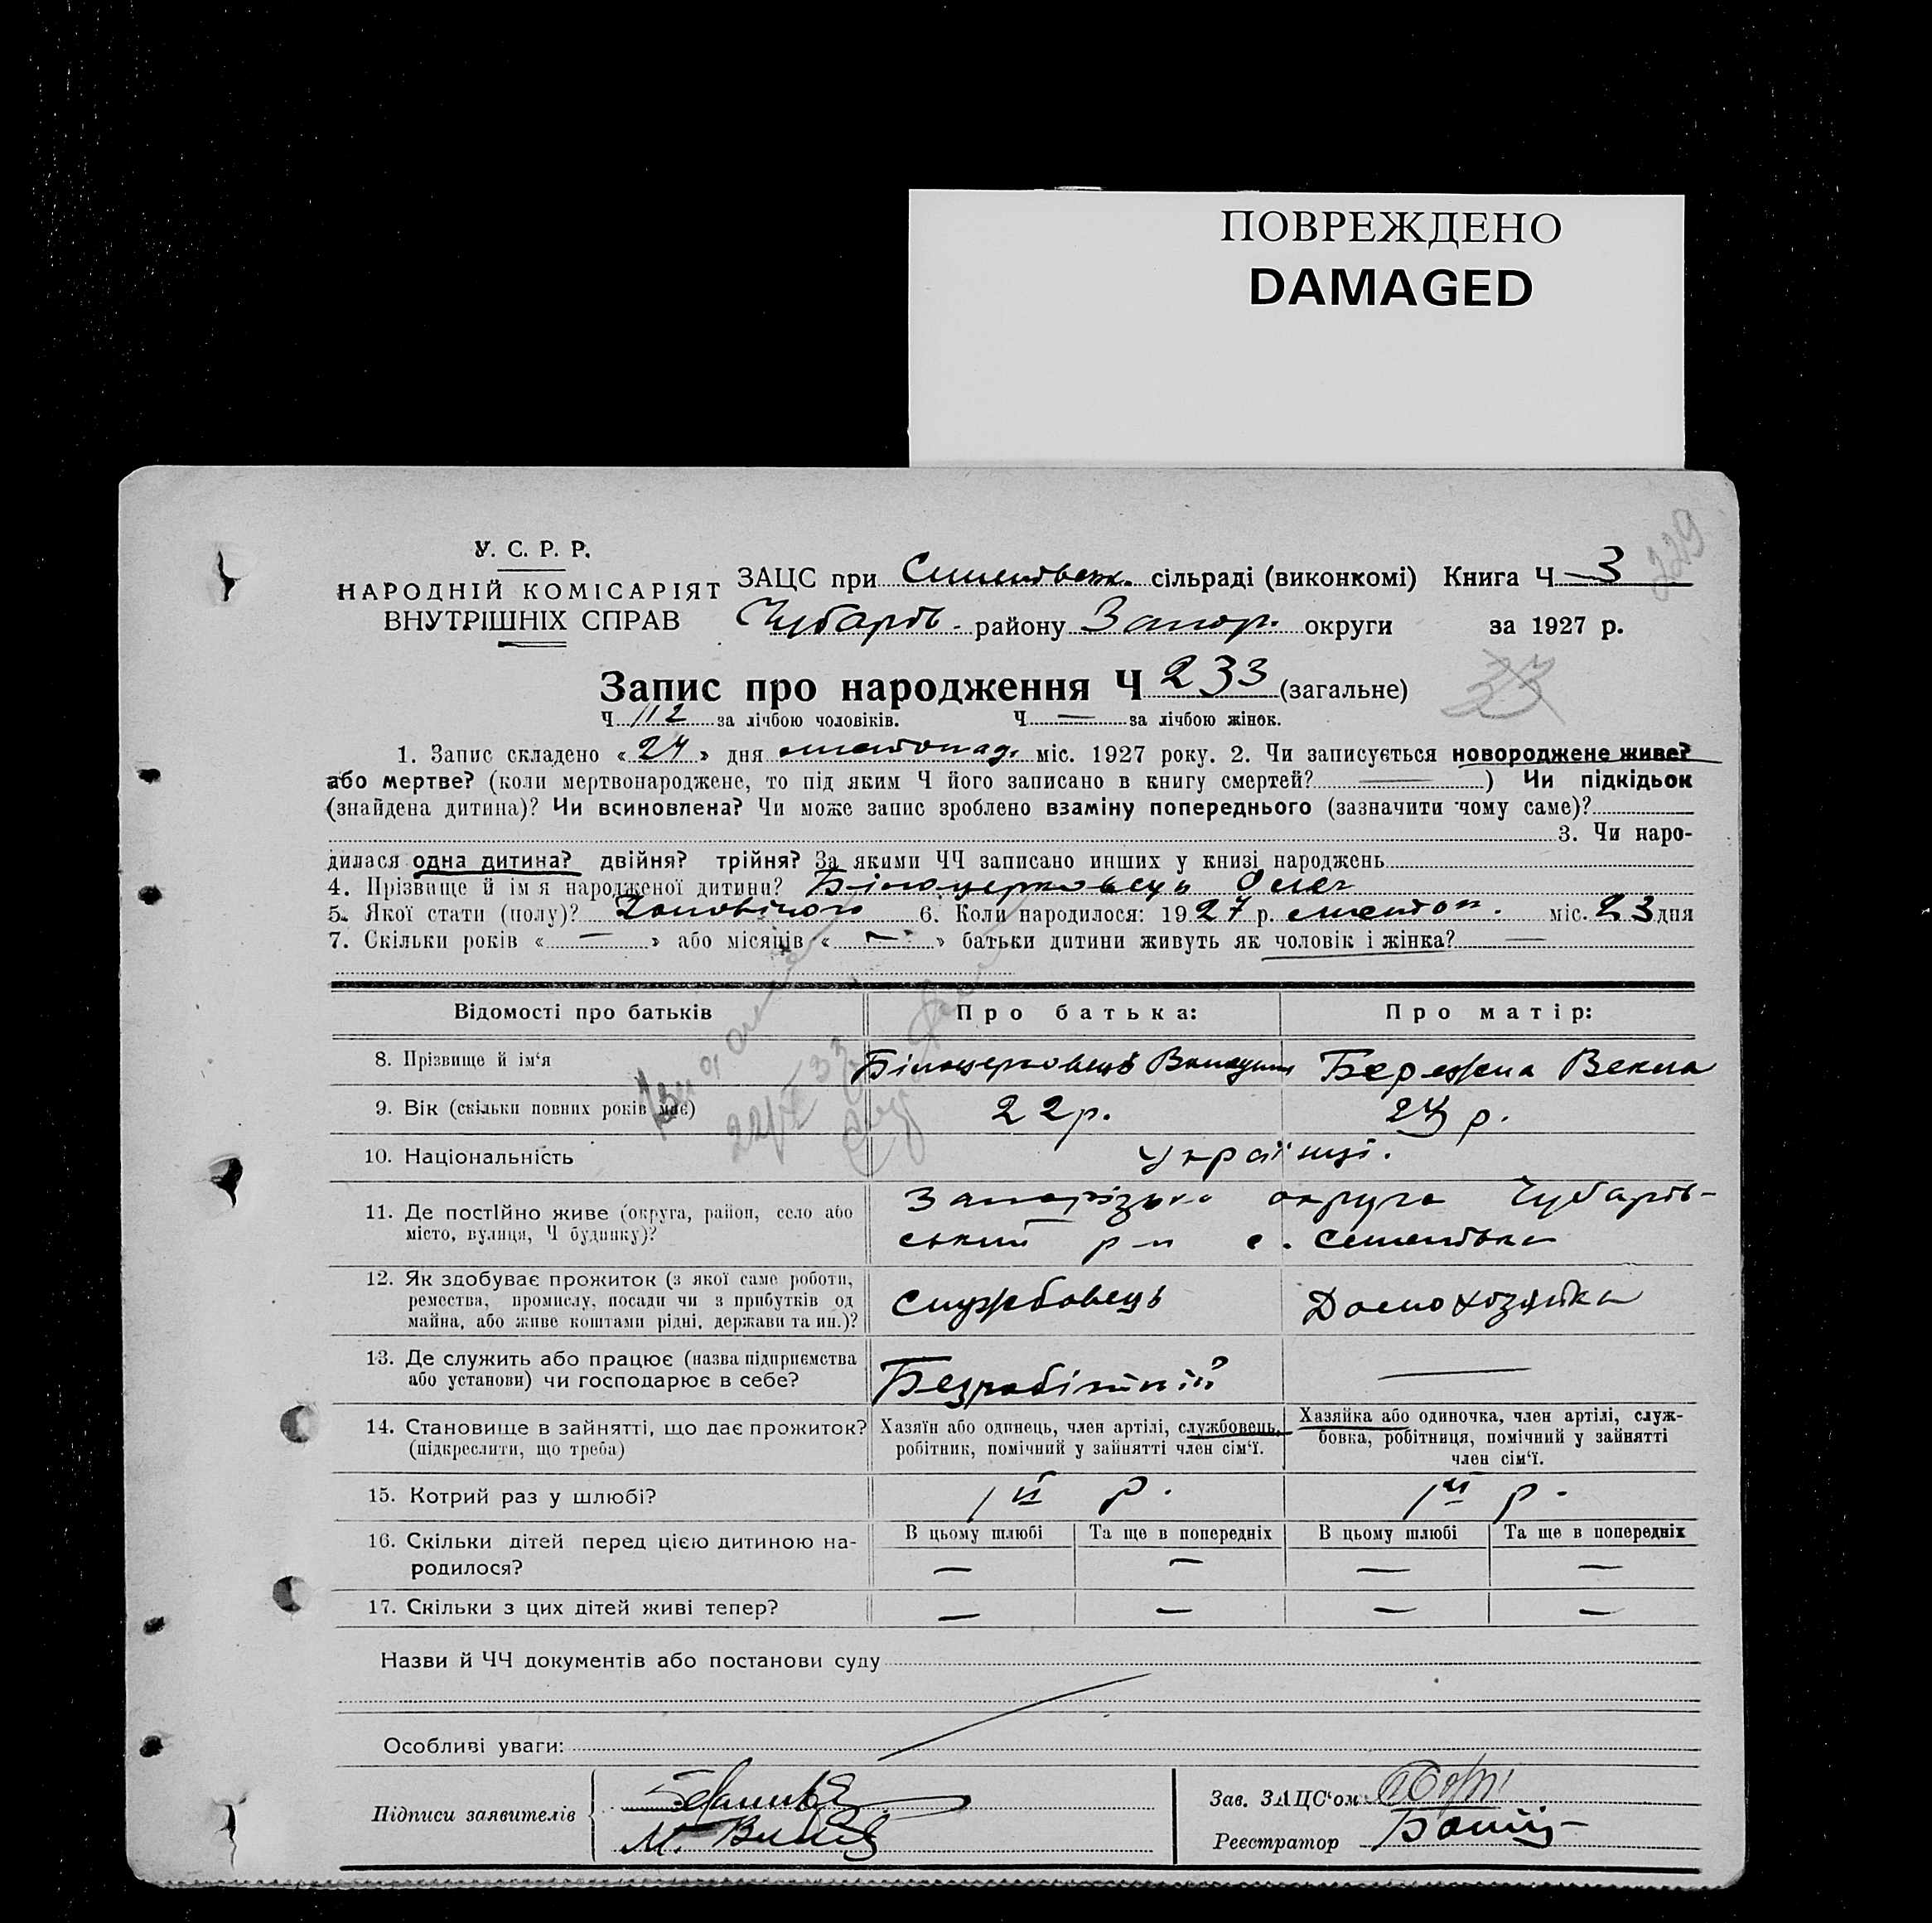 ПОВРЕЖДЕНО
DAMAGED
229
У. С. Р. Р.
НАРОДНІЙ КОМІСАРІЯТ
ВНУТРІШНІХ СПРАВ
ЗАЦС при сільраді (виконкомі) Книга Ч 3
Чубарів. району Запор. округи за 1927 р.
Запис про народження Ч 233 (загальне)
33
Ч 112 за лічбою чоловіків. Ч — за лічбою жінок.
1. Запис складено « 24 » дня листопад. міс. 1927 року. 2. Чи записується новороджене живе?
або мертве? (коли мертвонароджене, то під яким Ч його записано в книгу смертей? — ) Чи підкідьок
(знайдена дитина)? Чи всиновлена? Чи може запис зроблено взаміну попереднього (зазначити чому саме)?
3. Чи наро-
дилася одна дитина? двійня? трійня? За якими ЧЧ записано инших у книзі народжень
4. Прізвище й ім'я народженої дитини? Білоцерковець Олег
5. Якої стати (полу)? Чоловічого 6. Коли народилося: 1927 р. листоп. міс. 23 дня
7. Скільки років « — » або місяців « — » батьки дитини живуть як чоловік і жінка? —
Відомості про батьків Про батька: Про матір:
8. Прізвище й ім'я Білоцерковець Бережна Векла
9. Вік (скільки повних років має) 22 р. р.
10. Національність Українці.
11. Де постійно живе (округа, район, село або Запорізька округа Чубарів-
місто, вулиця, Ч будинку)? ський р-н с. Семенівка
12. Як здобуває прожиток (з якої саме роботи,
ремества, промислу, посади чи з прибутків од Службовець Домохозяйка
майна, або живе коштами рідні, держави та ин.)?
13. Де служить або працює (назва підприємства
або установи) чи господарює в себе? Безробітній —
14. Становище в зайнятті, що дає прожиток? Хазяїн або одинець, член артілі, службовець, Хазяйка або одиночка, член артілі, служ-
(підкреслити, що треба) робітник, помічний у зайнятті член сім'ї. бовка, робітниця, помічний у зайнятті
член сім'ї.
15. Котрий раз у шлюбі? 1й р. 1й р.
16. Скільки дітей перед цією дитиною на- В цьому шлюбі Та ще в попередніх В цьому шлюбі Та ще в попередніх
родилося? — — — —
17. Скільки з цих дітей живі тепер? — — — —
Назви й ЧЧ документів або постанови суду
Особливі уваги:
Підписи заявителів
Зав. ЗАЦС'ом
Реєстратор